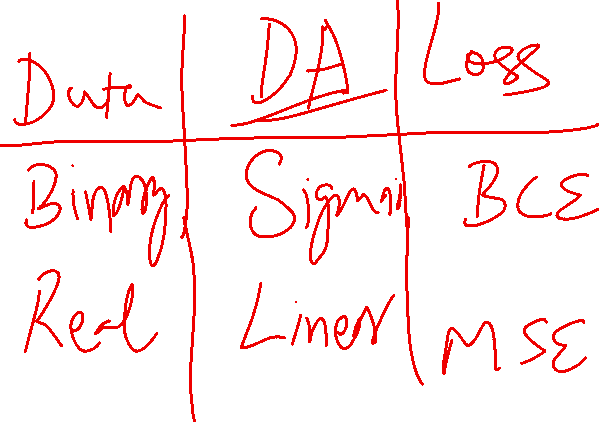 Data DA Loss
Binary Sigmoi BCE
Real Linear MSE